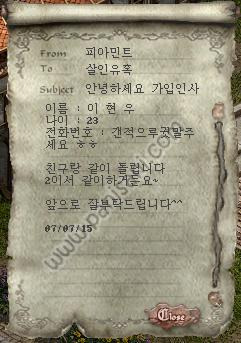 From 피아민트
To 살인유혹
Subject 안녕하세요 가입인사
이름 : 이 현 우
나이 : 23
전화번호 : 갠적으루귓말주
세요 ㅎㅎ
친구랑 같이 돌립니다
2이서 같이하거든요~
앞으로 잘부탁드립니다^^
07/07/15
Close